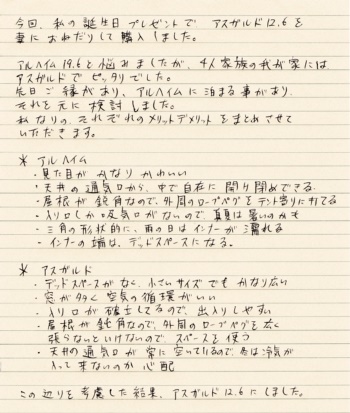 今回、私の誕生日プレゼントで アスガルド12.6を
妻におねだりして購入しました。
アルヘイム19.6と悩みましたが、4人家族の我が家には、
アスガルドでピッタリでした。
先日ご縁があり、アルヘイムに泊まる事があり、
それを元に検討しました。
私なりの、それぞれのメリットデメリットをまとめさせて
いただきます。
* アルヘイム
・見た目がかなりかわいい
・天井の通気口から、中で自在に開け閉めできる
・屋根が鈍角なので、外周のロープペグをテント寄りに打てる
・入り口しか吸気口がないので、真夏は暑いのかも
・三角の形状的に、雨の日はインナーが濡れる
・インナーの端は、デッドスペースになる。
* アスガルド
・デッドスペースがなく、小さいサイズでもかなり広い
・窓が多く空気の循環がいい
・入り口が確立してるので、出入りしやすい
・屋根が鈍角なので、外周のロープペグを広く
張らないといけないので、スペースを使う
・天井の通気口が常に空いているので、冬は冷気が
入って来ないのか心配
この辺りを考慮した結果、アスガルド12.6にしました。